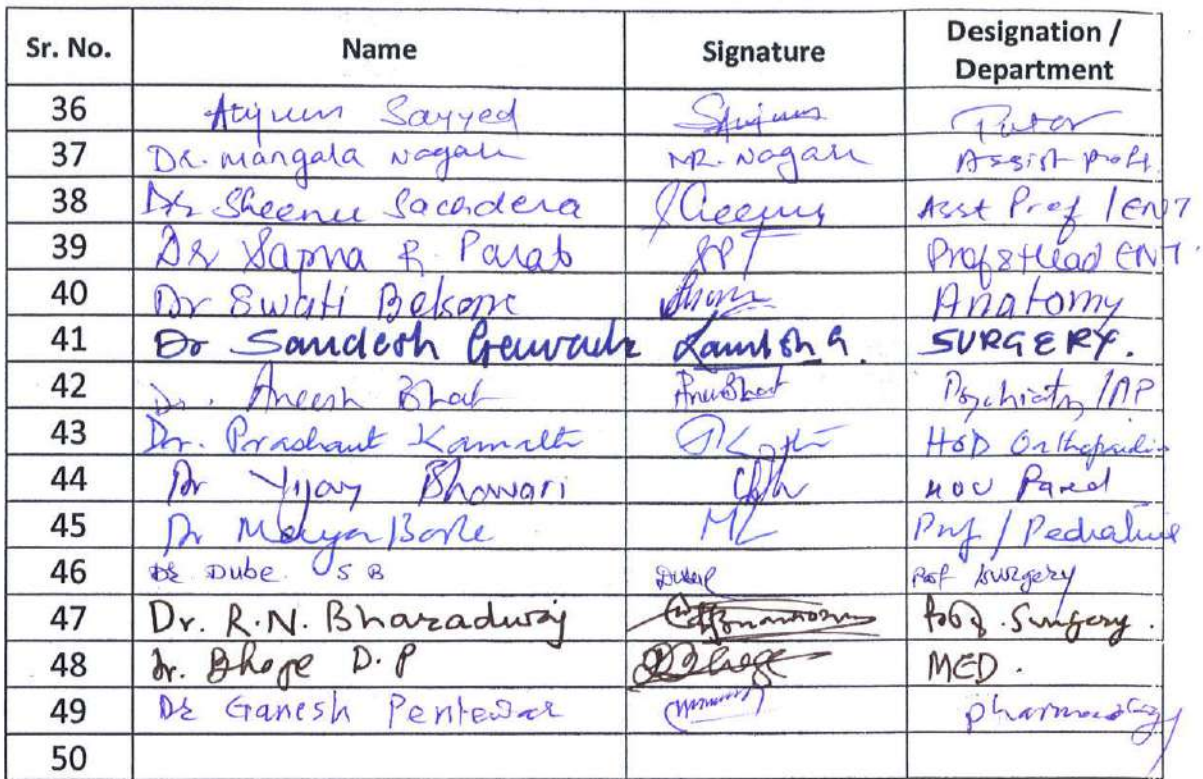 Sr. No. Name Signature Designation / Department
36 Sayyed Tutor
37 Dr. Mangala Nagare MR. Nagare Assist prof.
38 Dr Sheenu Asst Prof / ENT
39 Dr Sapna R. Parab SPT Prof & Head ENT.
40 Dr Swati Belsare Anatomy
41 Dr Sandesh SURGERY.
42 Dr. Aneesh Bhat AneeBhat Psychiatry / AP
43 Dr. Prashant Kamath HOD Orthopaedic
44 Dr Vijay Bhavari HOD
45 Dr Prof / Pediatric
46 Dr Dube. S B Dube Prof Surgery
47 Dr. R.N. Bharadwaj Prof. Surgery.
48 Dr. Bhoge D. P DBhoge MED.
49 Dr Ganesh Pentewar
50